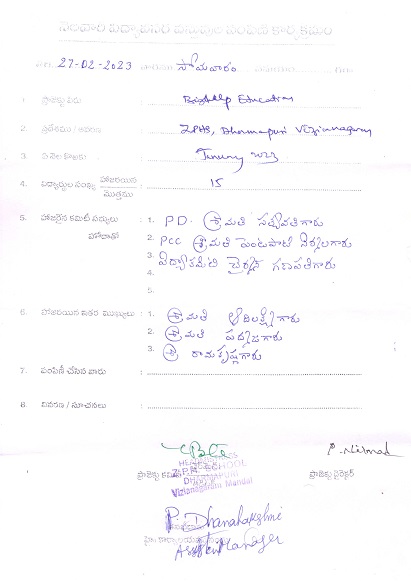 నెలవారి విద్యాపరమైన వస్తువుల పంపిణి కార్యక్రమం
తేది. 27-02-2023 వారము సోమవారం సమయము గం॥
1. ప్రాజెక్టు పేరు : Education
2. ప్రదేశము / : ZPHS, Dharmapuri Vizianagaram
3. ఏ నెల కొరకు : 2023
4. విద్యార్థుల సంఖ్య హాజరయిన / మొత్తము : 15
5. హాజరైన కమిటీ సభ్యులు : 1. PD. శ్రీమతి సత్యవతిగారు
హోదాతో 2. PCC శ్రీమతి పెంటపాటి నిర్మలగారు
3. విద్యాకమిటి చైర్మన్ గణపతిగారు
4.
5.
6. హాజరయిన ఇతర ముఖ్యులు : 1. శ్రీమతి ఆదిలక్ష్మిగారు
2. శ్రీమతి పద్మజగారు
3. శ్రీ రామకృష్ణగారు
7. పంపిణీ చేసిన వారు :
8. వివరణ / సూచనలు :
P. Nirmal
Z.P.H. SCHOOL
ప్రాజెక్టు ప్రాజెక్టు డైరెక్టర్
Vizianagaram Mandal
P. Dhanalakshmi
Assistent Manager